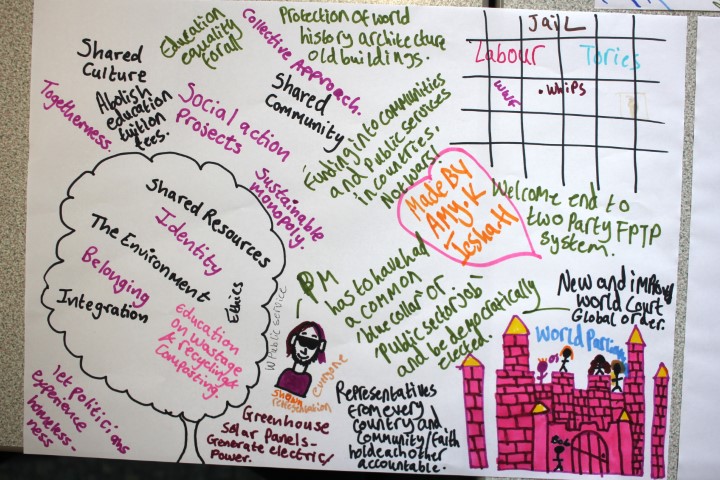 Education
equality
for all
Collective Approach.
Protection of world
history architecture
old buildings.
Jail
Labour
Tories
WWF
• Whips
Shared
Culture
Togetherness
Abolish
education
tuition
fees.
Social action
Projects
Shared
Community
Funding into communities
and public services
in countries,
Not wars!
Sustainable
monopoly.
Made By
Amy.K
Iesha.H
Welcome end to
two Party FPTP
system.
Shared Resources
Identity
The Environment
Belonging
Integration
Ethics
education
on wastage
& recycling &
composting.
Public service
PM
has to have had
a common
'blue collar' or
'Public sector job'
and be democratically
elected.
New and improved
World Court
Global order.
World Parliam
everyone
representation
let politicians
experience
homeless-
ness
Greenhouse
Solar Panels-
Generate electric/
Power.
Representatives
from every
country and
community/faith
hold each other
accountable.